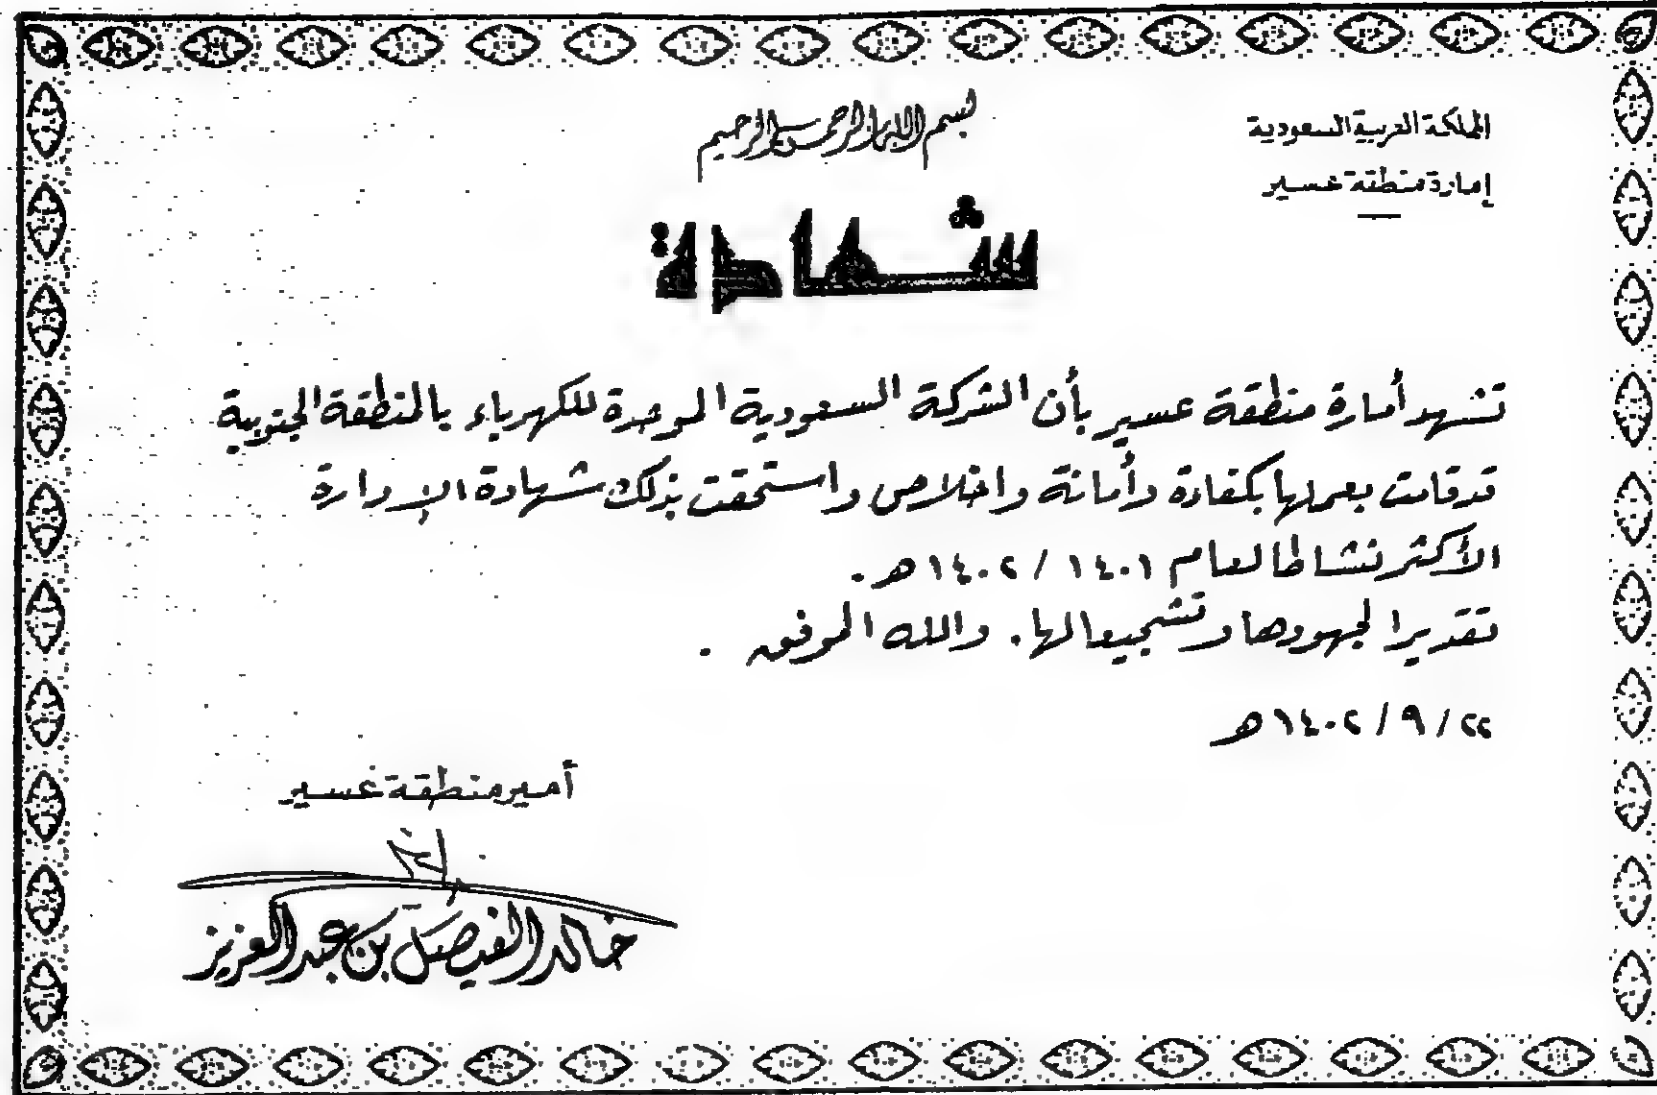 المملكة العربية السعودية
إمارة منطقة عسير
بسم الله الرحمن الرحيم
شهادة
تشهد أمارة منطقة عسير بأن الشركة السعودية الموحدة للكهرباء بالمنطقة الجنوبية
قد قامت بعملها بكفاءة وأمانة واخلاص واستحقت بذلك شهادة الإدارة
الأكثر نشاطا لعام ١٤٠١ / ١٤٠٢ هـ .
تقديرا لجهودها وتشجيعا لها . والله الموفق .
٢٢ / ٩ / ١٤٠٢ هـ
أمير منطقة عسير
خالد الفيصل بن عبد العزيز